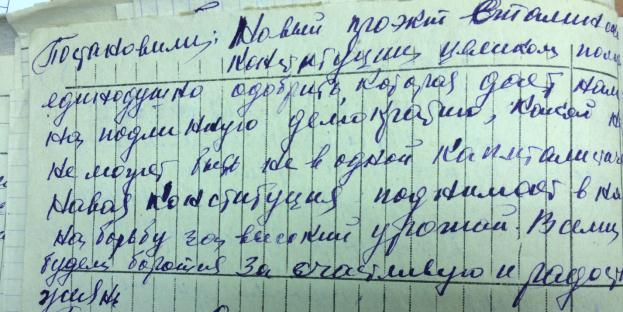 Постановили: Новый проэкт Сталинской
конституции целиком пол
единодушно одобрить, которая дает нам
на подлинную демократию, какой н
не может быть не в одной капиталисти
Новая конституция поднимает в на
на борьбу за высокий урожай. Всеми
будем боротся за счастливую и радост
жизнь